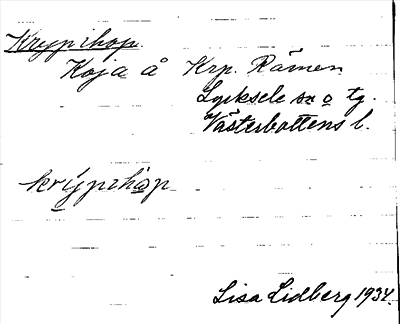 Krypihop.
Koja å Krp. Råmen
Lycksele sn o tg.
Västerbottens l.
krýpihop
Lisa Lidberg 1934.